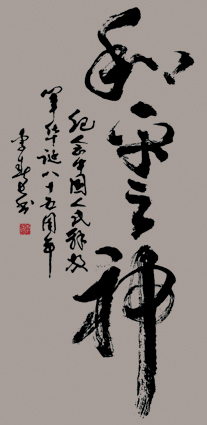 和平之神
纪念中国人民解放
军华诞八十五周年
李秀书